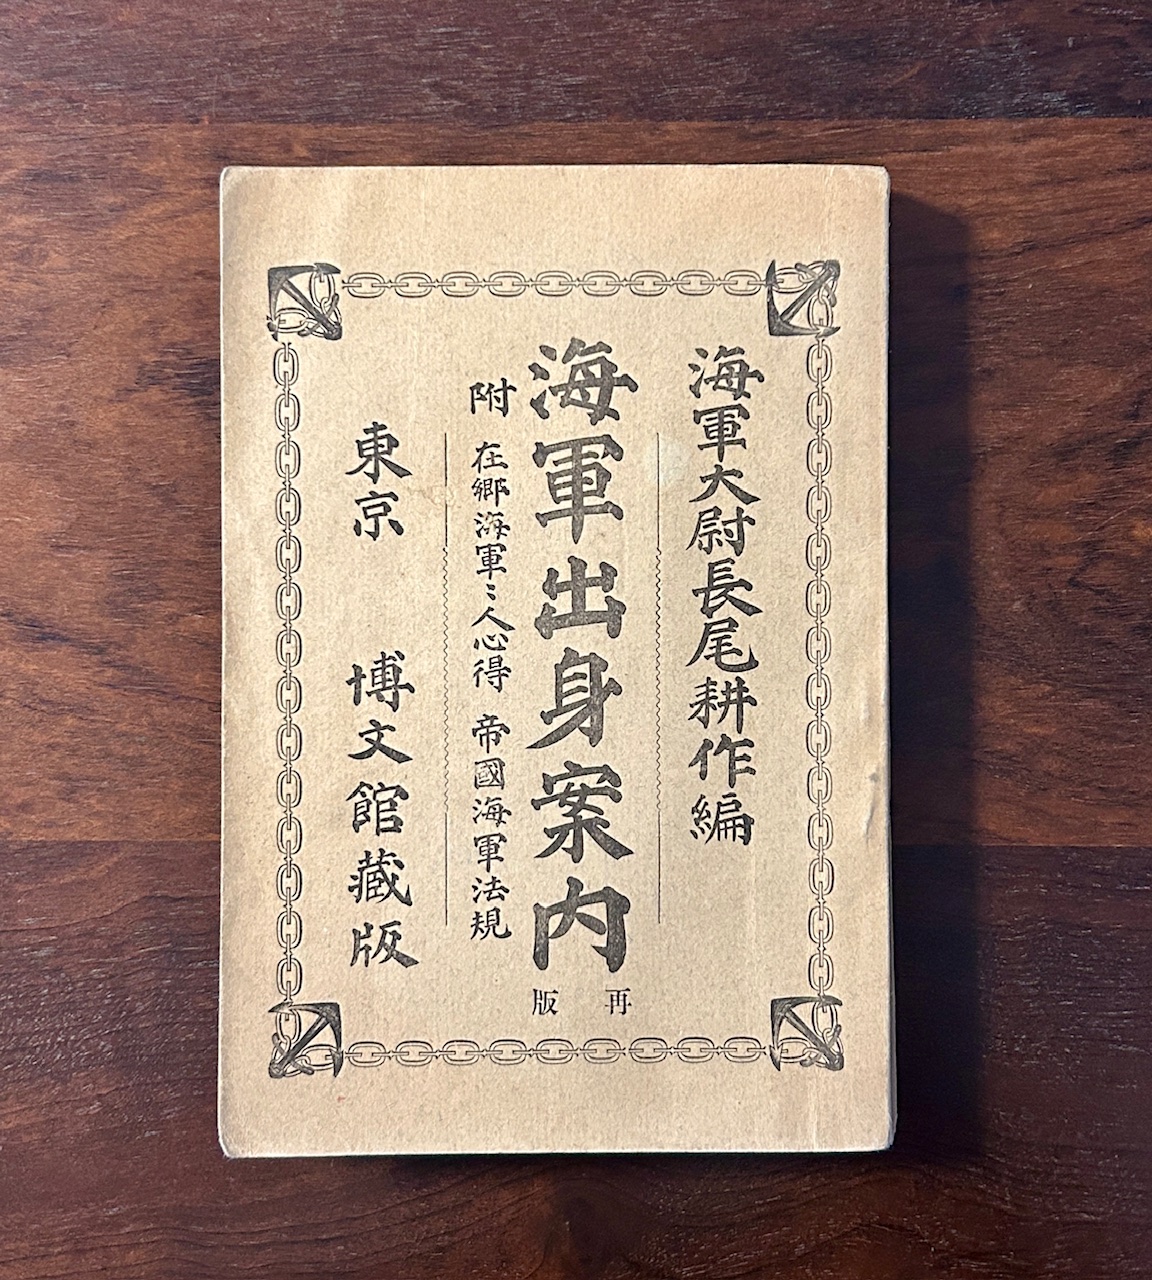 海軍大尉長尾耕作編
海軍出身案内
再版
附 在郷海軍〻人心得 帝國海軍法規
東京 博文館藏版